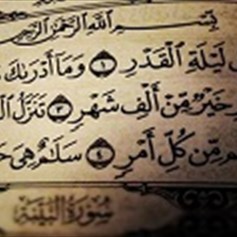 بِسْمِ اللَّهِ الرَّحْمَٰنِ الرَّحِيمِ
لَيْلَةِ الْقَدْرِ ١ وَمَا أَدْرَىٰكَ
خَيْرٌ مِّنْ أَلْفِ شَهْرٍ ٣ تَنَزَّلُ
مِّن كُلِّ أَمْرٍ ٤ سَلَامٌ هِيَ
سُورَةُ الْبَيِّنَةِ